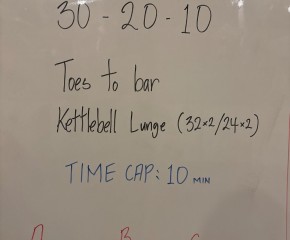 30 - 20 - 10
Toes to bar
Kettlebell Lunge (32×2/24×2)
TIME CAP: 10 MIN